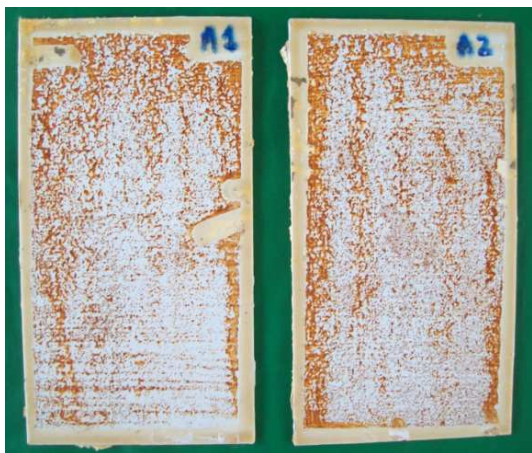 A1
A2